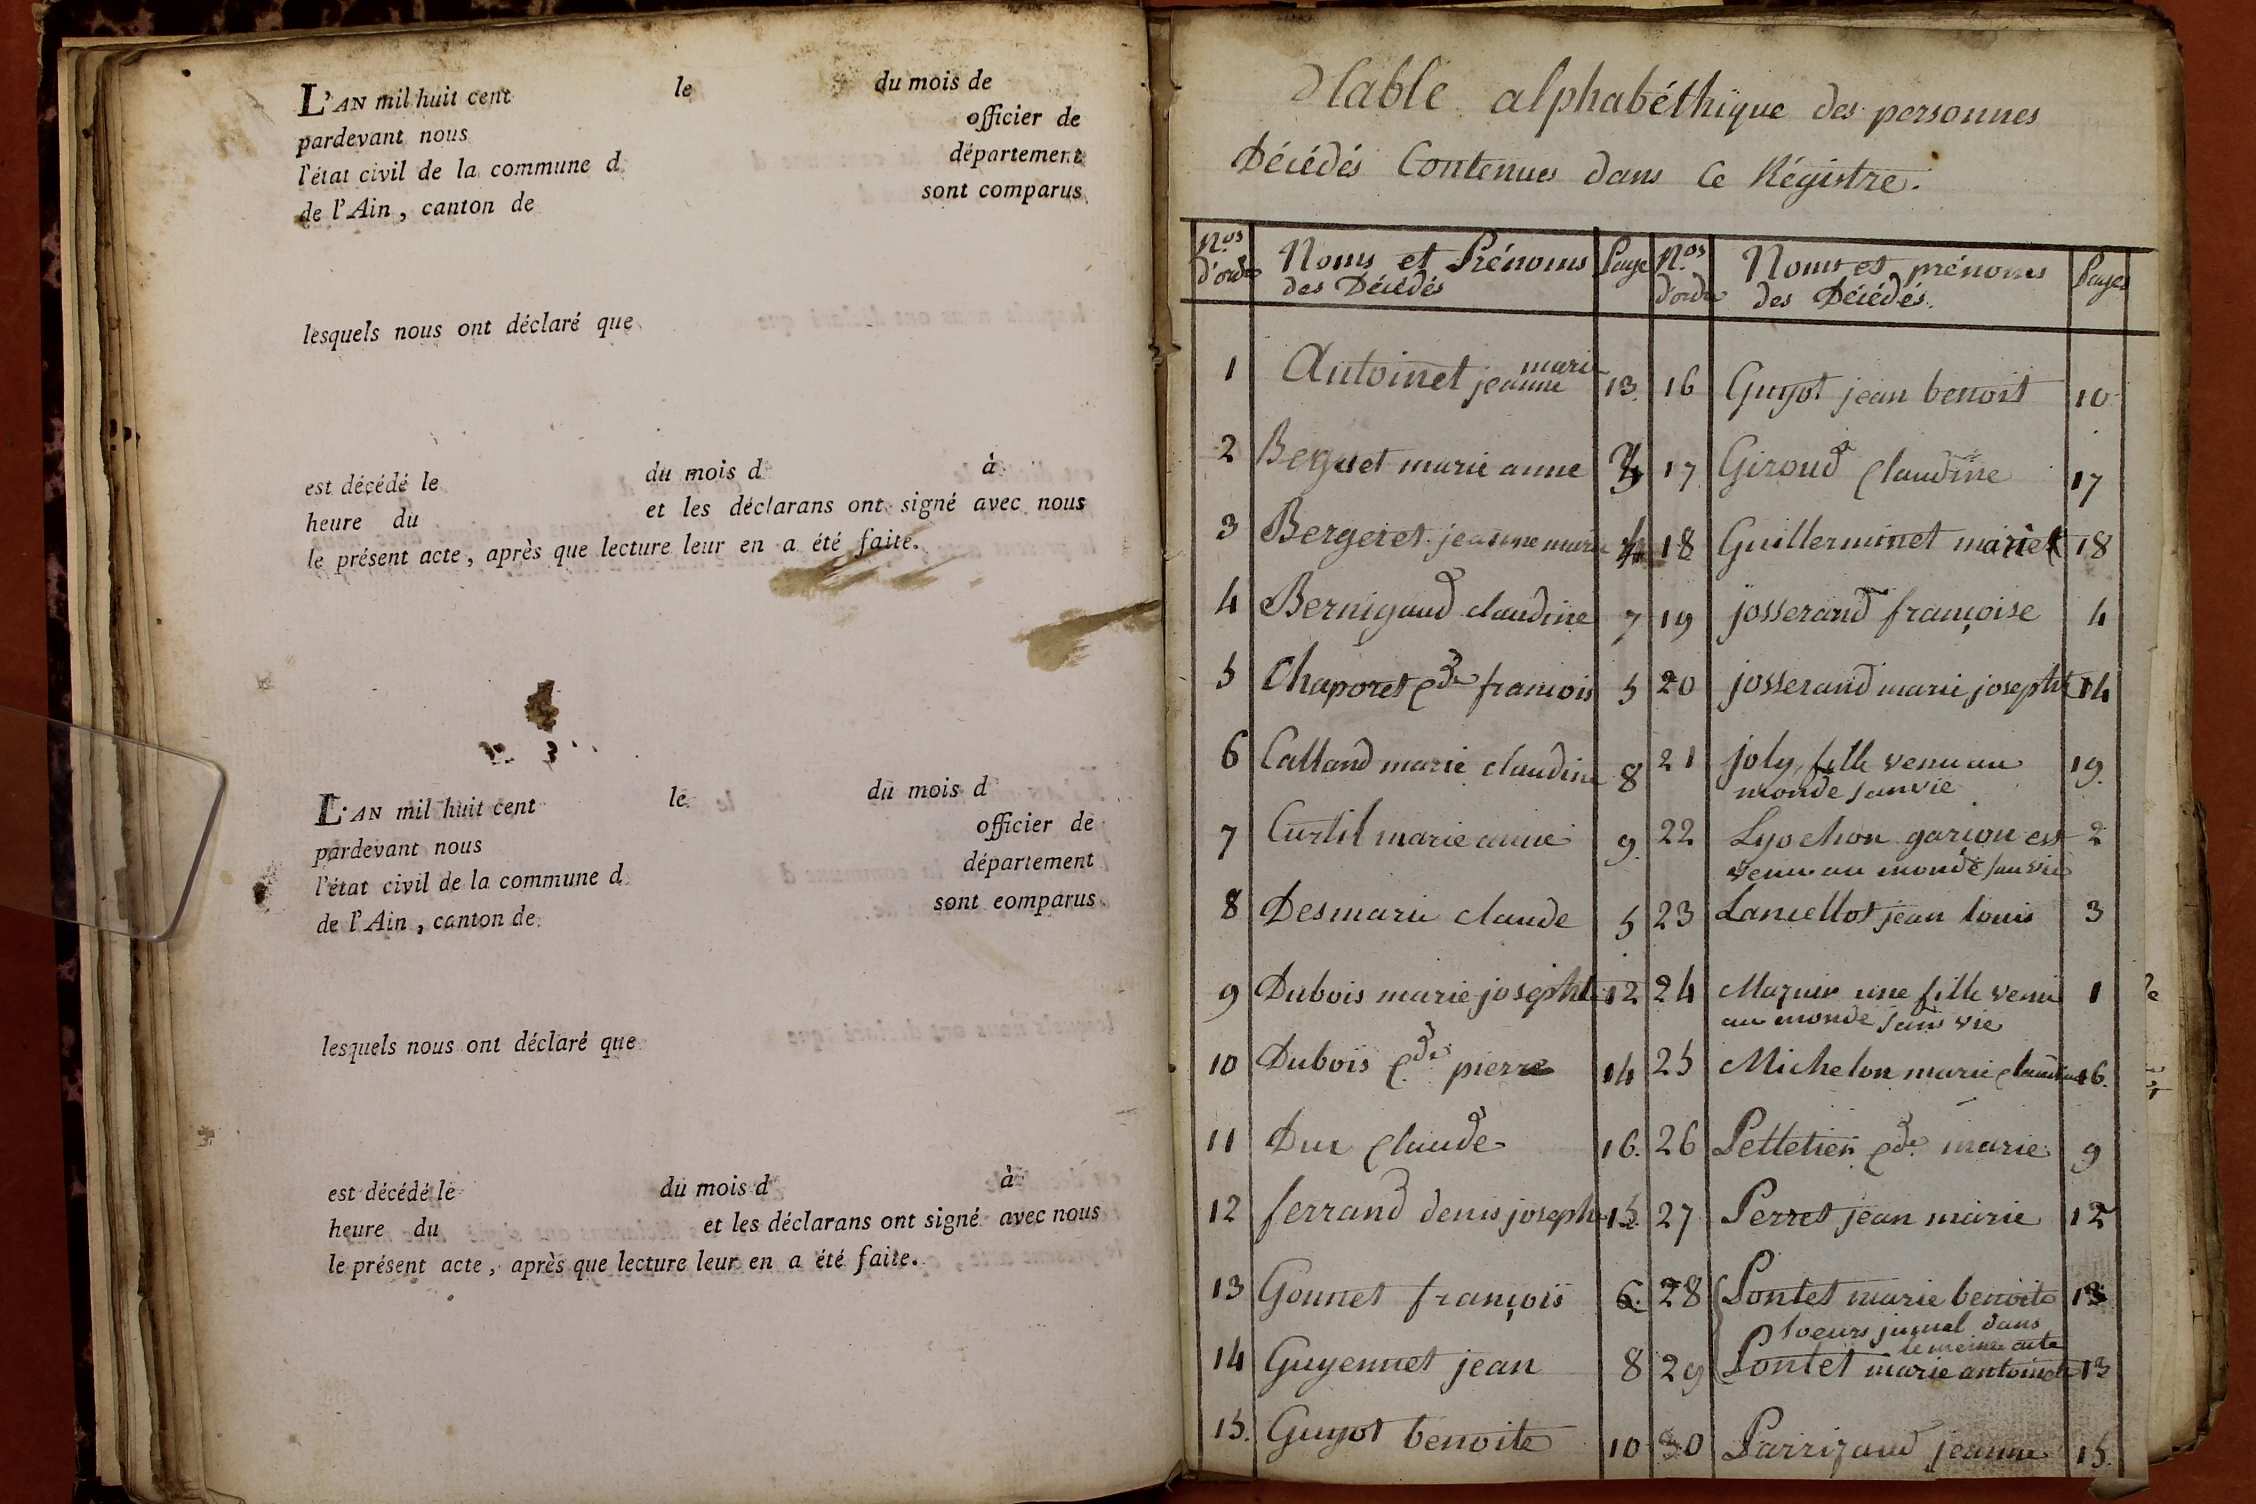 L'AN mil huit cent le du mois de
pardevant nous officier de
l'état civil de la commune d département
de l'Ain, canton de sont comparus
lesquels nous ont déclaré que
est décédé le du mois d à
heure du et les déclarans ont signé avec nous
le présent acte, après que lecture leur en a été faite.
L'AN mil huit cent le du mois d
pardevant nous officier de
l'état civil de la commune d département
de l'Ain, canton de sont eomparus
lesquels nous ont déclaré que
est décédé le du mois d à
heure du et les déclarans ont signé avec nous
le présent acte, après que lecture leur en a été faite.
Table alphabéthique des personnes
Décédés Contenues dans Ce Régistre.
N.os d'ordre
Noms et Prénoms des Décédés
Page
1 Antoinet jeanne marie 13.
2 Beguet marie anne
3 Bergeret jeanne marie 4
4 Bernigaud claudine 7
5 Chaporet Cde francois 5
6 Calland marie claudine 8
7 Curtil marie anne 9.
8 Desmarie claude 5
9 Dubois marie josephte 12
10 Dubois Cde pierre 14
11 Duc Claude 16.
12 ferrand denis joseph 15.
13 Gonnet françois 6.
14 Guyennet jean 8
15. Guyot benoite 10
N.os d'ordre
Noms et prénoms des Décédés.
Pages
16 Guyot jean benoit 10
17 Giroud Claudine 17
18 Guillerminet marie 18
19 josserand françoise 4
20 josserand marie josephte 14
21 joly fille venu au 19.
monde sanvie
22 Lyochon garcon est 2
venu au monde sanvie
23 Lancellot jean louis 3
24 une fille venu 1
au monde sans vie
25 Michelon marie claudine 16.
26 Pelletier Cde. marie 9
27 Perret jean marie 12
28 Pontet marie benoite 13
soeurs jumel dans
le meme acte
29 Pontet marie antoinete 13
30 Parrizand jeanne 15.